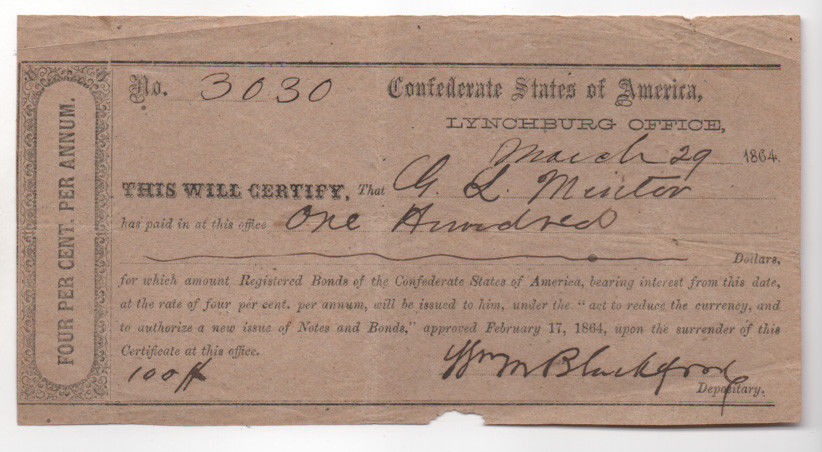 FOUR PER CENT. PER ANNUM.
No. 3030 Confederate States of America,
LYNCHBURG OFFICE,
March 29 1864.
THIS WILL CERTIFY, That G. L. Minter
has paid in at this office One Hundred
Dollars,
for which amount Registered Bonds of the Confederate States of America, bearing interest from this date,
at the rate of four per cent. per annum, will be issued to him, under the "act to reduce the currency, and
to authorize a new issue of Notes and Bonds," approved February 17, 1864, upon the surrender of this
Certificate at this office.
100 Wm M Blackford
Depositary.